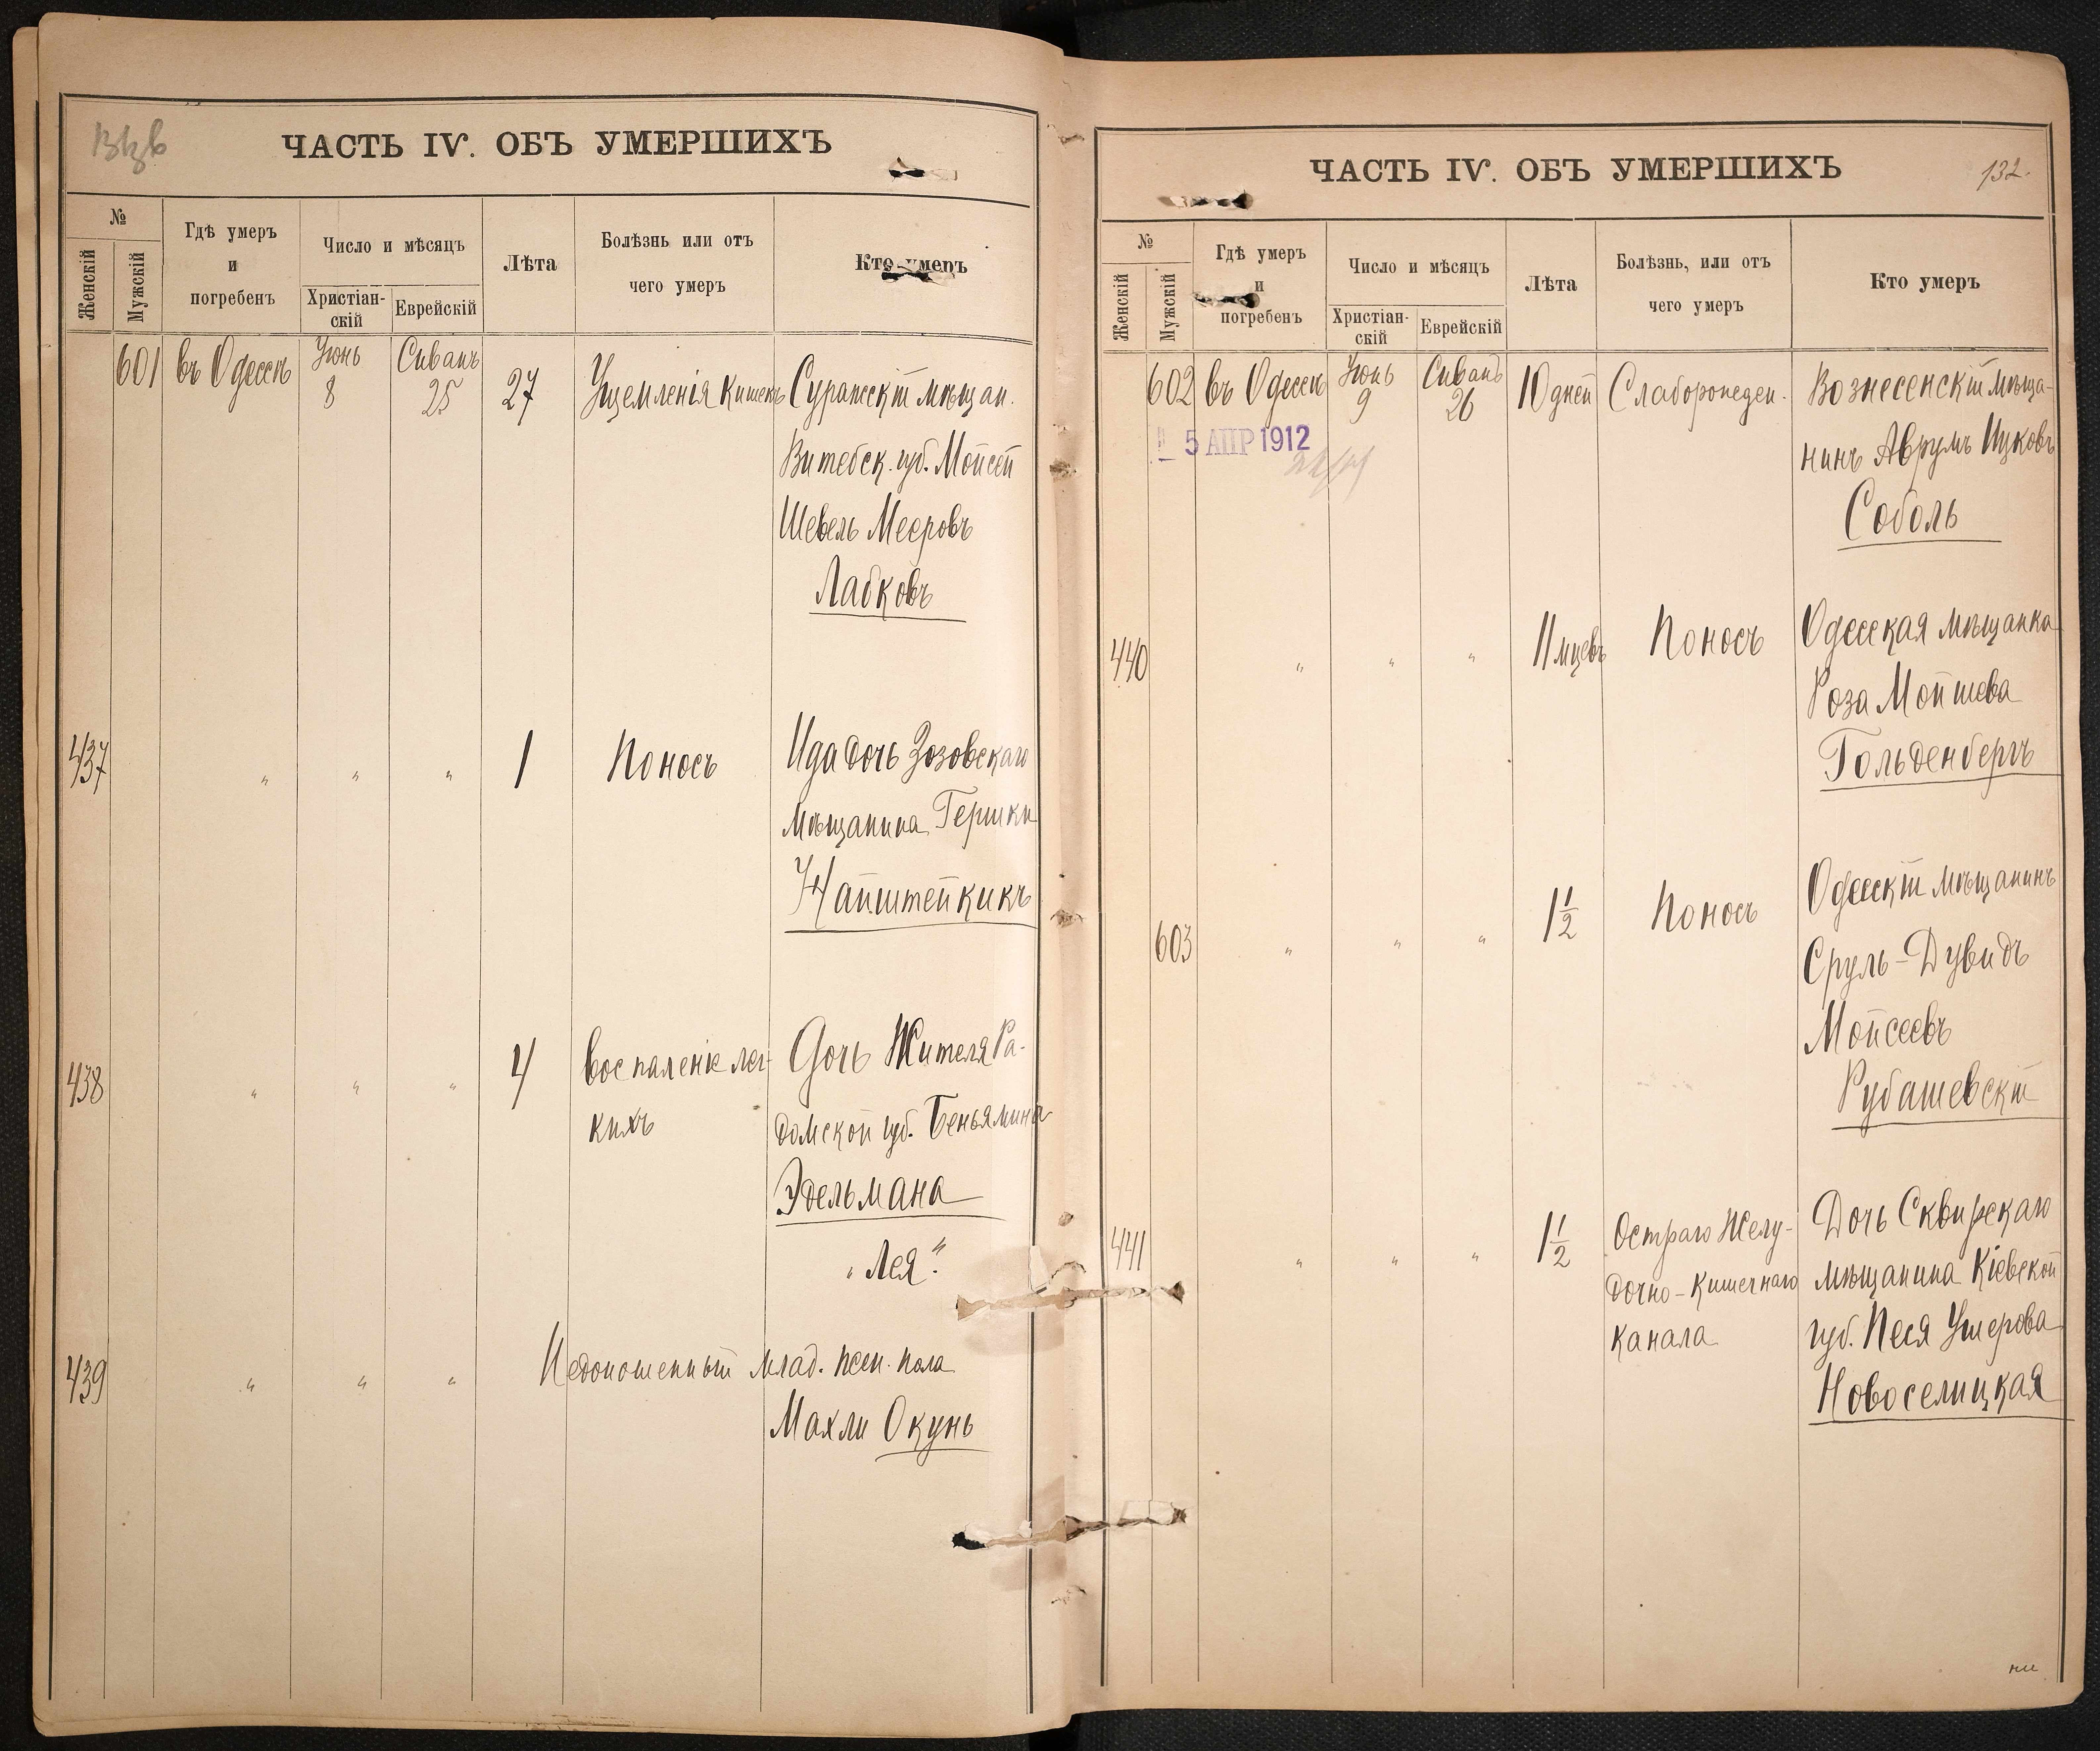 ЧАСТЬ IV. ОБЪ УМЕРШИХЪ
№
Женскій
Мужскій
Гдѣ умеръ
и
погребенъ
Число и мѣсяцъ
Христіан-
скій
Еврейскій
Лѣта
Болѣзнь или отъ
чего умеръ
Кто умеръ
601 въ Одессѣ Іюнь 8 Сиванъ 25 27 Ущемленія кишекъ Суражскій мѣщан.
Витебск. губ. Мойсей
Шевель Мееровъ
Лабковъ
437 " " " 1 Поносъ Ида дочь Зозовскаго
мѣщанина Гершки
438 " " " 4 Воспаленіе лег- Дочь Жителя Ра-
кихъ домской губ. Беньямина
Эдельмана
„Лея"
439 " " " Недоношенный млад. жен. пола
Махли Окунь
ЧАСТЬ IV. ОБЪ УМЕРШИХЪ
132.
№
Женскій
Мужскій
Гдѣ умеръ
и
погребенъ
Число и мѣсяцъ
Христіан-
скій
Еврейскій
Лѣта
Болѣзнь, или отъ
чего умеръ
Кто умеръ
602 въ Одессѣ Іюнь 9 Сиванъ 26 10 дней Слаборожден. Вознесенскій мѣща-
5 АПР 1912
нинъ Аврумъ Ицковъ
Соболь
440 " " " 11 мцевъ Поносъ Одесская мѣщанка
Роза Мойшева
Гольденбергъ
603 " " " 1 1/2 Поносъ Одесскій мѣщанинъ
Сруль-Дувидъ
Мойсеевъ
Рубашевскій
441 " " " 1 1/2 Остраго Желу- Дочь Сквирскаго
дочно-Кишечнаго мѣщанина Кіевской
канала губ. Песя Ушерова
Новоселицкая